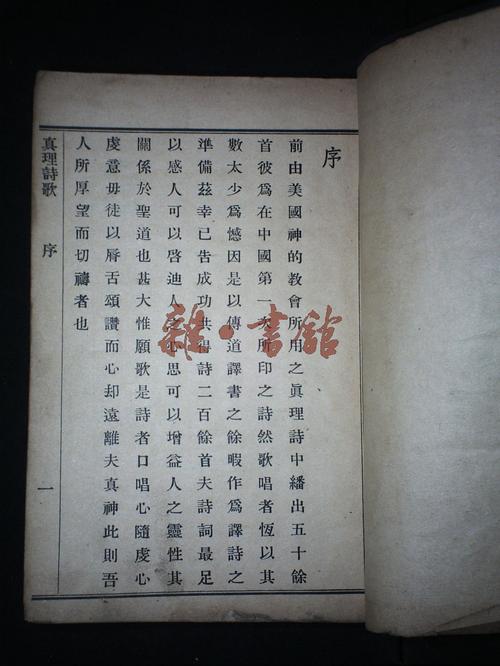 序
前由美國神的教會所用之真理詩中繙出五十餘
首彼爲在中國第一次所印之詩然歌唱者恆以其
數太少爲憾因是以傳道譯書之餘暇作爲譯詩之
準備茲幸已告成功共得詩二百餘首夫詩詞最足
以感人可以啓迪人之心思可以增益人之靈性其
關係於聖道也甚大惟願歌是詩者口唱心隨虔心
虔意毋徒以唇舌頌讚而心却遠離夫真神此則吾
人所厚望而切禱者也
真理詩歌 序 一
雜·書館